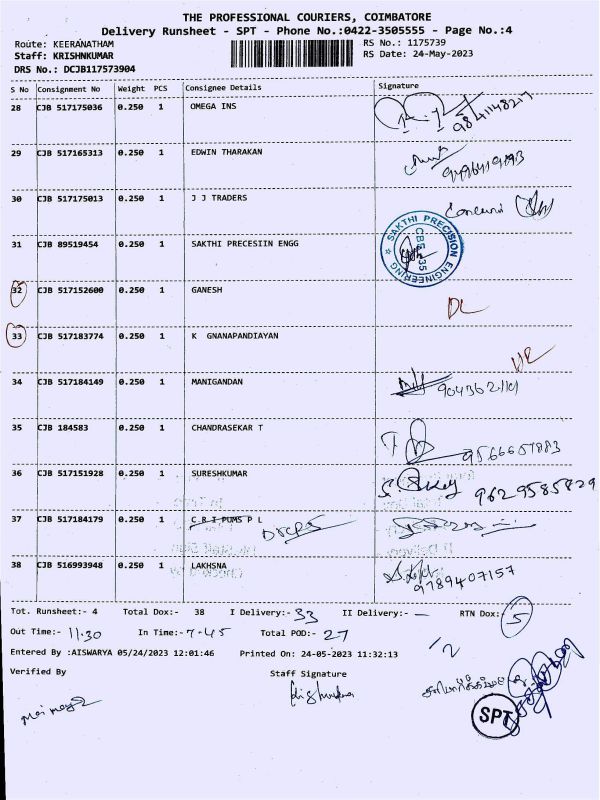 THE PROFESSIONAL COURIERS, COIMBATORE
Delivery Runsheet - SPT - Phone No.:0422-3505555 - Page No.:4
Route: KEERANATHAM RS No.: 1175739
Staff: KRISHNKUMAR RS Date: 24-May-2023
DRS No.: DCJB117573904
S No Consignment No Weight PCS Consignee Details Signature
28 CJB 517175036 0.250 1 OMEGA INS
29 CJB 517165313 0.250 1 EDWIN THARAKAN
30 CJB 517175013 0.250 1 J J TRADERS
31 CJB 89519454 0.250 1 SAKTHI PRECESIIN ENGG
SAKTHI PRECISION ENGINEERING
CBE - 35
32 CJB 517152600 0.250 1 GANESH DL
33 CJB 517183774 0.250 1 K GNANAPANDIAYAN
34 CJB 517184149 0.250 1 MANIGANDAN
35 CJB 184583 0.250 1 CHANDRASEKAR T 9566657883
36 CJB 517151928 0.250 1 SURESHKUMAR 9629585829
37 CJB 517184179 0.250 1 C R I PUMS P L
38 CJB 516993948 0.250 1 LAKHSNA 9789407157
Tot. Runsheet:- 4 Total Dox:- 38 I Delivery:- 33 II Delivery:- — RTN Dox: 5
Out Time:- 11.30 In Time:- 7-45 Total POD:- 27 1/2
Entered By :AISWARYA 05/24/2023 12:01:46 Printed On: 24-05-2023 11:32:13
Verified By Staff Signature
SPT